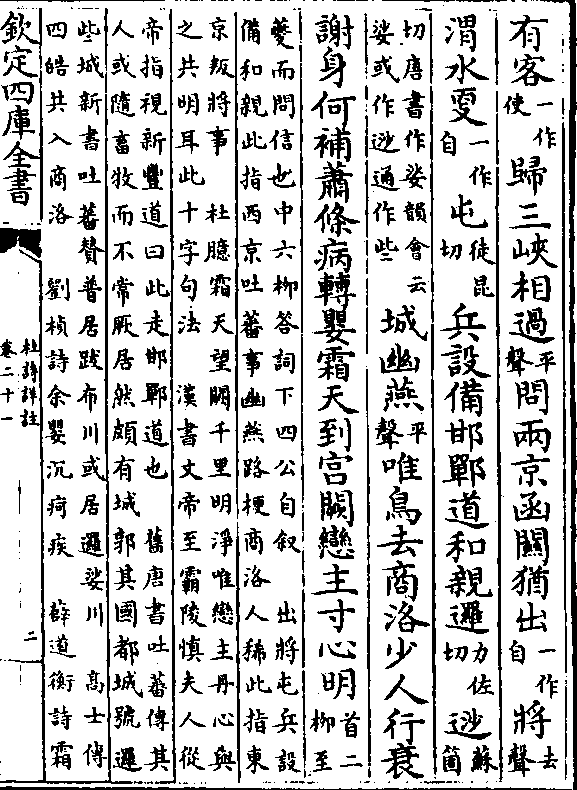 有客一作使歸三峽相過平聲問兩京函關猶出一作自將去聲
渭水更一作自屯徒昆切兵設備邯鄲道和親邏力佐切逤蘇箇
切唐書作娑韻會云娑或作逤通作些城幽燕平聲唯鳥去商洛少人行衰
謝身何補蕭條病轉嬰霜天到宫闕戀主寸心明首二柳至
夔而問信也中六柳答詞下四公自叙　出將屯兵設
備和親此指西京吐蕃事幽燕路梗商洛人稀此指東
京叛將事　杜臆霜天望闕千里明淨唯戀主丹心與
之共明耳此十字句法　漢書文帝至霸陵慎夫人從
帝指視新豐道曰此走邯鄲道也　舊唐書吐蕃傳其
人或隨畜牧而不常厥居然頗有城郭其國都城號邏
些城新書吐蕃贊普居跋布川或居邏娑川　高士傳
四皓共入商洛　劉楨詩余嬰沉疴疾　薛道衡詩霜
欽定四庫全書
杜詩詳註
卷二十一
二